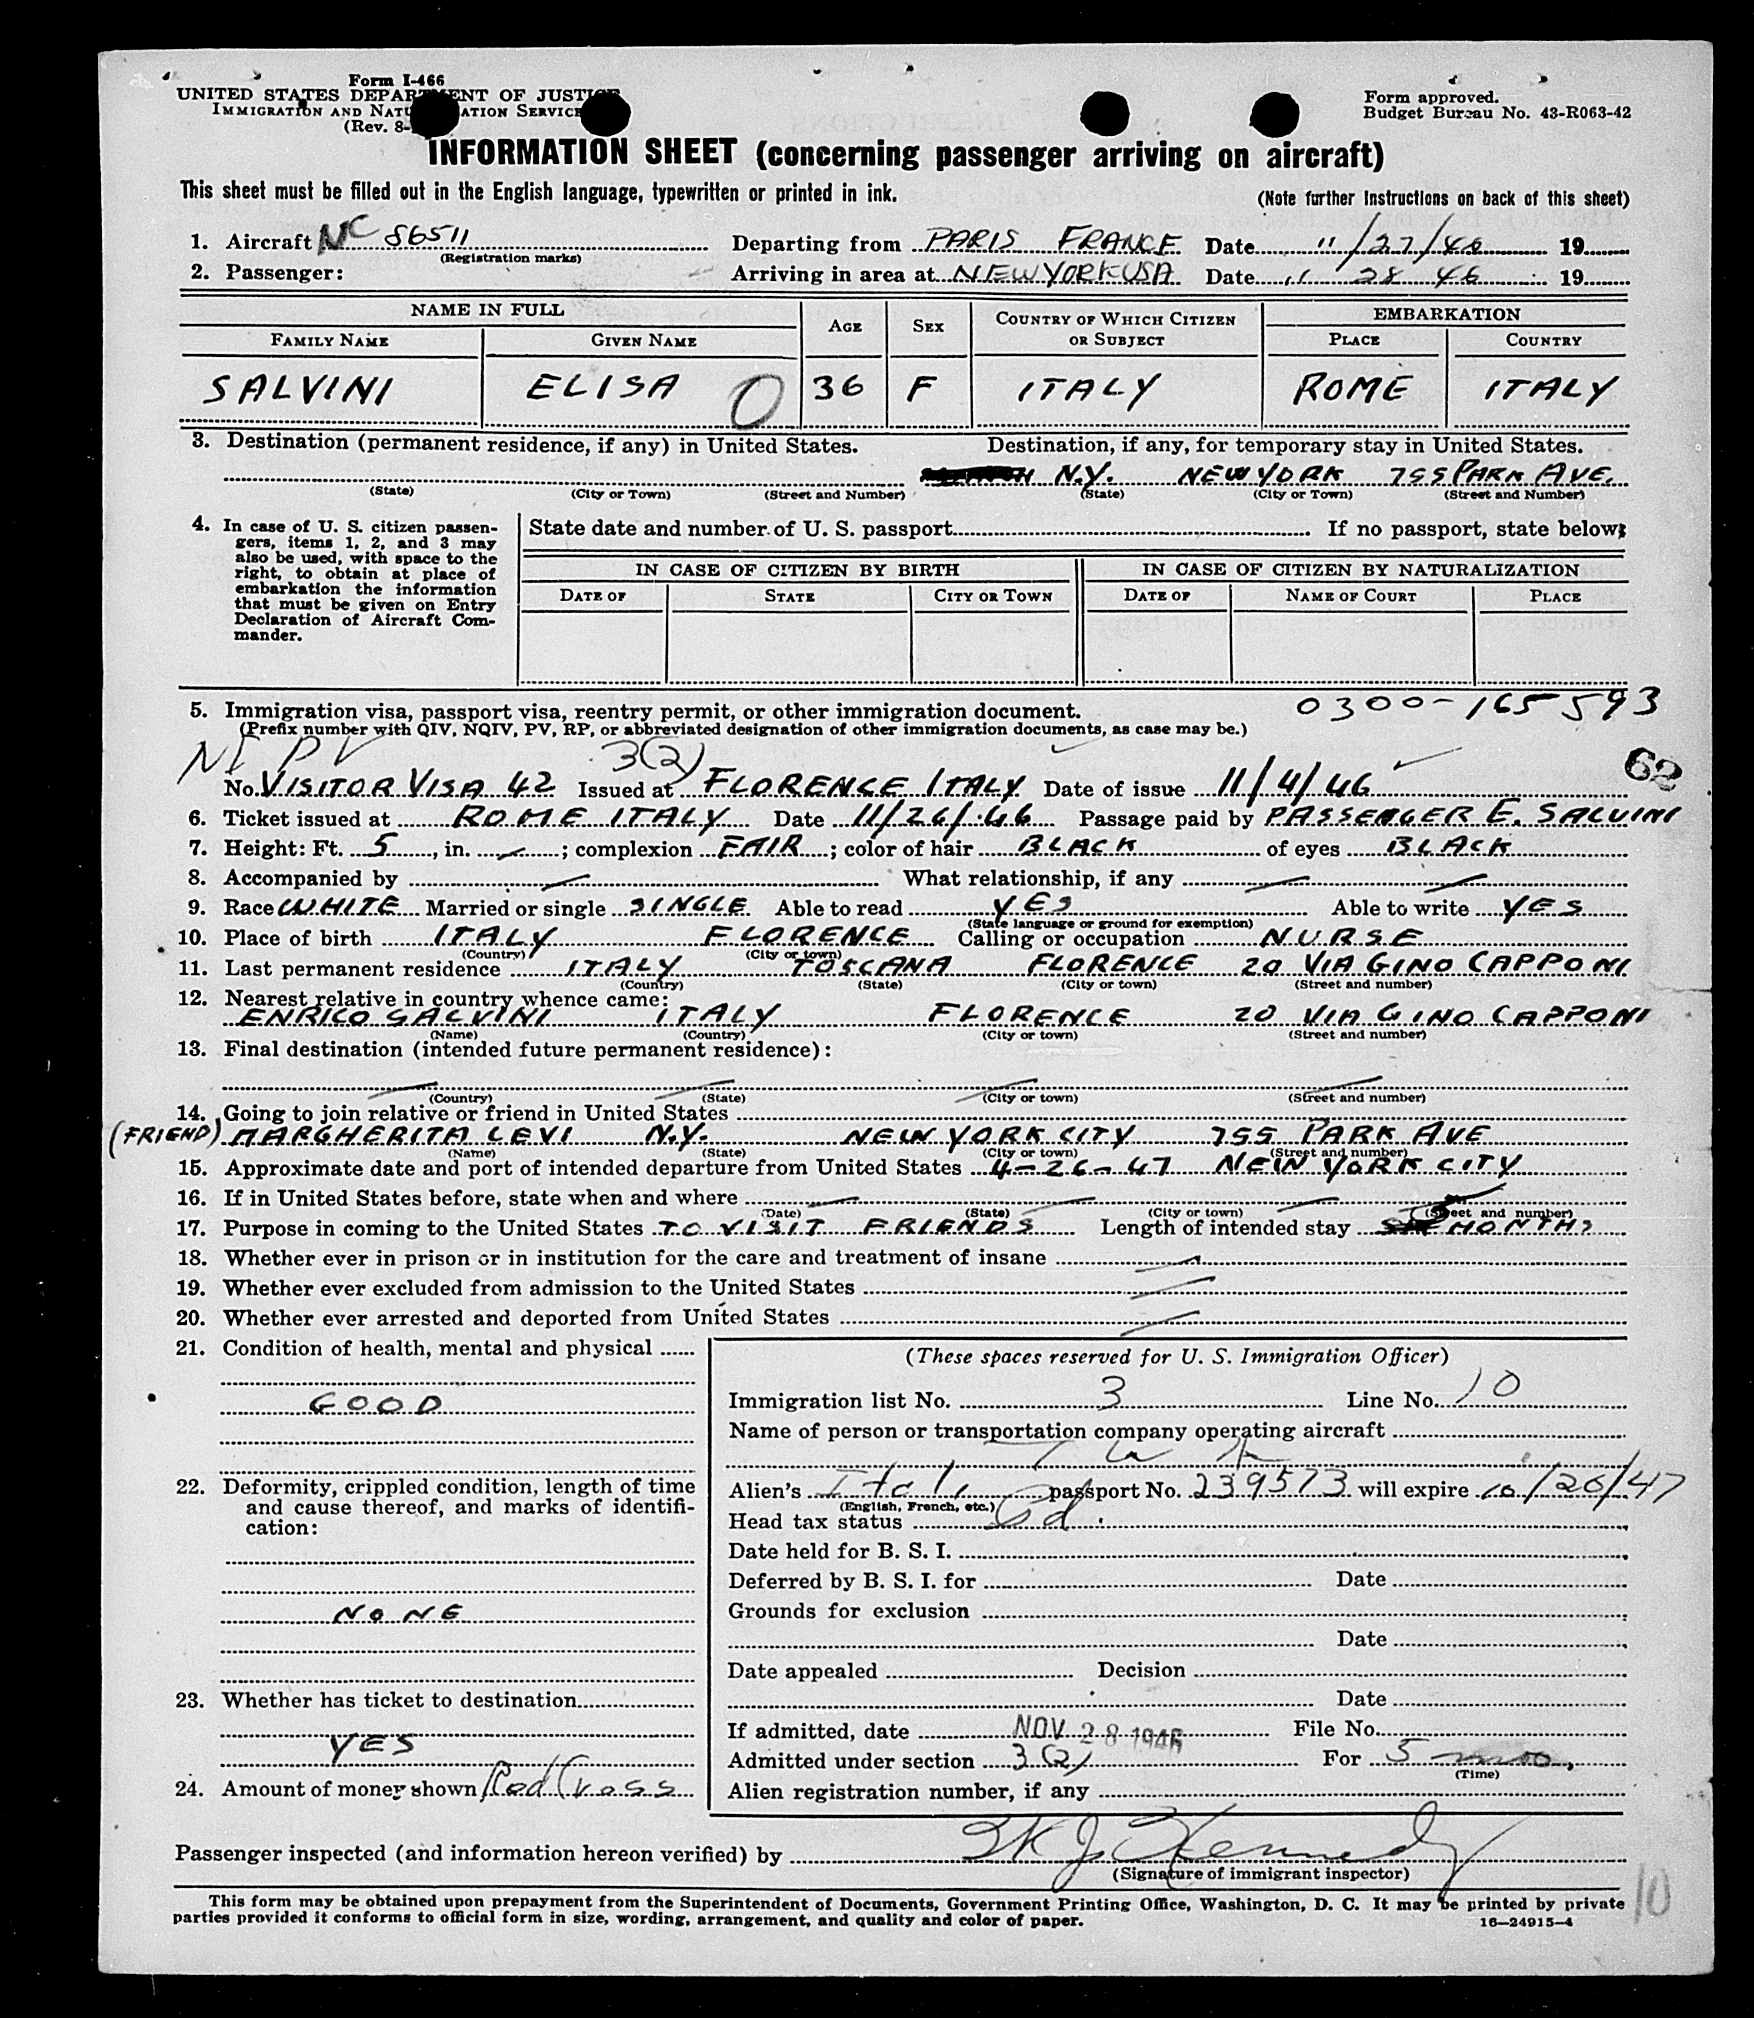 Form I-466
UNITED STATES DEPARTMENT OF JUSTICE
IMMIGRATION AND NATURALIZATION SERVICE
(Rev. 8-
Form approved.
Budget Bureau No. 43-R063-42
INFORMATION SHEET (concerning passenger arriving on aircraft)
This sheet must be filled out in the English language, typewritten or printed in ink.
(Note further instructions on back of this sheet)
1. Aircraft NC 86511 Departing from PARIS FRANCE Date 11/27/46 19
(Registration marks)
2. Passenger: Arriving in area at NEW YORK USA Date 11 28 46 19
NAME IN FULL AGE SEX COUNTRY OF WHICH CITIZEN OR SUBJECT EMBARKATION
FAMILY NAME GIVEN NAME PLACE COUNTRY
SALVINI ELISA O 36 F ITALY ROME ITALY
3. Destination (permanent residence, if any) in United States. Destination, if any, for temporary stay in United States.
N.Y. NEW YORK 755 PARK AVE.
(State) (City or Town) (Street and Number) (State) (City or Town) (Street and Number)
4. In case of U. S. citizen passengers, items 1, 2, and 3 may also be used, with space to the right, to obtain at place of embarkation the information that must be given on Entry Declaration of Aircraft Commander.
State date and number of U. S. passport If no passport, state below:
IN CASE OF CITIZEN BY BIRTH IN CASE OF CITIZEN BY NATURALIZATION
DATE OF STATE CITY OR TOWN DATE OF NAME OF COURT PLACE
0300-165593
5. Immigration visa, passport visa, reentry permit, or other immigration document.
(Prefix number with QIV, NQIV, PV, RP, or abbreviated designation of other immigration documents, as case may be.)
NI PV 3(2) 62
No. VISITOR VISA 42 Issued at FLORENCE ITALY Date of issue 11/4/46
6. Ticket issued at ROME ITALY Date 11/26/46 Passage paid by PASSENGER E. SALVINI
7. Height: Ft. 5, in. —; complexion FAIR; color of hair BLACK of eyes BLACK
8. Accompanied by — What relationship, if any — —
9. Race WHITE Married or single SINGLE Able to read YES Able to write YES
(State language or ground for exemption)
10. Place of birth ITALY FLORENCE Calling or occupation NURSE
(Country) (City or town)
11. Last permanent residence ITALY TOSCANA FLORENCE 20 VIA GINO CAPPONI
(Country) (State) (City or town) (Street and number)
12. Nearest relative in country whence came:
ENRICO SALVINI ITALY FLORENCE 20 VIA GINO CAPPONI
(Name) (Country) (City or town) (Street and number)
13. Final destination (intended future permanent residence):
— — — —
(Country) (State) (City or town) (Street and number)
14. Going to join relative or friend in United States
(FRIEND) MARGHERITA LEVI N.Y. NEW YORK CITY 755 PARK AVE
(Name) (State) (City or town) (Street and number)
15. Approximate date and port of intended departure from United States 4-26-47 NEW YORK CITY
16. If in United States before, state when and where — — — —
(Date) (State) (City or town) (Street and number)
17. Purpose in coming to the United States TO VISIT FRIENDS Length of intended stay 5 MONTHS
18. Whether ever in prison or in institution for the care and treatment of insane —
19. Whether ever excluded from admission to the United States —
20. Whether ever arrested and deported from United States —
21. Condition of health, mental and physical
GOOD
22. Deformity, crippled condition, length of time and cause thereof, and marks of identification:
NONE
23. Whether has ticket to destination
YES
24. Amount of money shown Red Cross
(These spaces reserved for U. S. Immigration Officer)
Immigration list No. 3 Line No. 10
Name of person or transportation company operating aircraft
T W A
Alien's Itali passport No. 239573 will expire 10/26/47
(English, French, etc.)
Head tax status
Date held for B. S. I.
Deferred by B. S. I. for Date
Grounds for exclusion
Date
Date appealed Decision
Date
If admitted, date NOV 28 1946 File No.
Admitted under section 3(2) For 5 mos.
(Time)
Alien registration number, if any
Passenger inspected (and information hereon verified) by J Kennedy
(Signature of immigrant inspector)
10
This form may be obtained upon prepayment from the Superintendent of Documents, Government Printing Office, Washington, D. C. It may be printed by private
parties provided it conforms to official form in size, wording, arrangement, and quality and color of paper.
16—24915-4